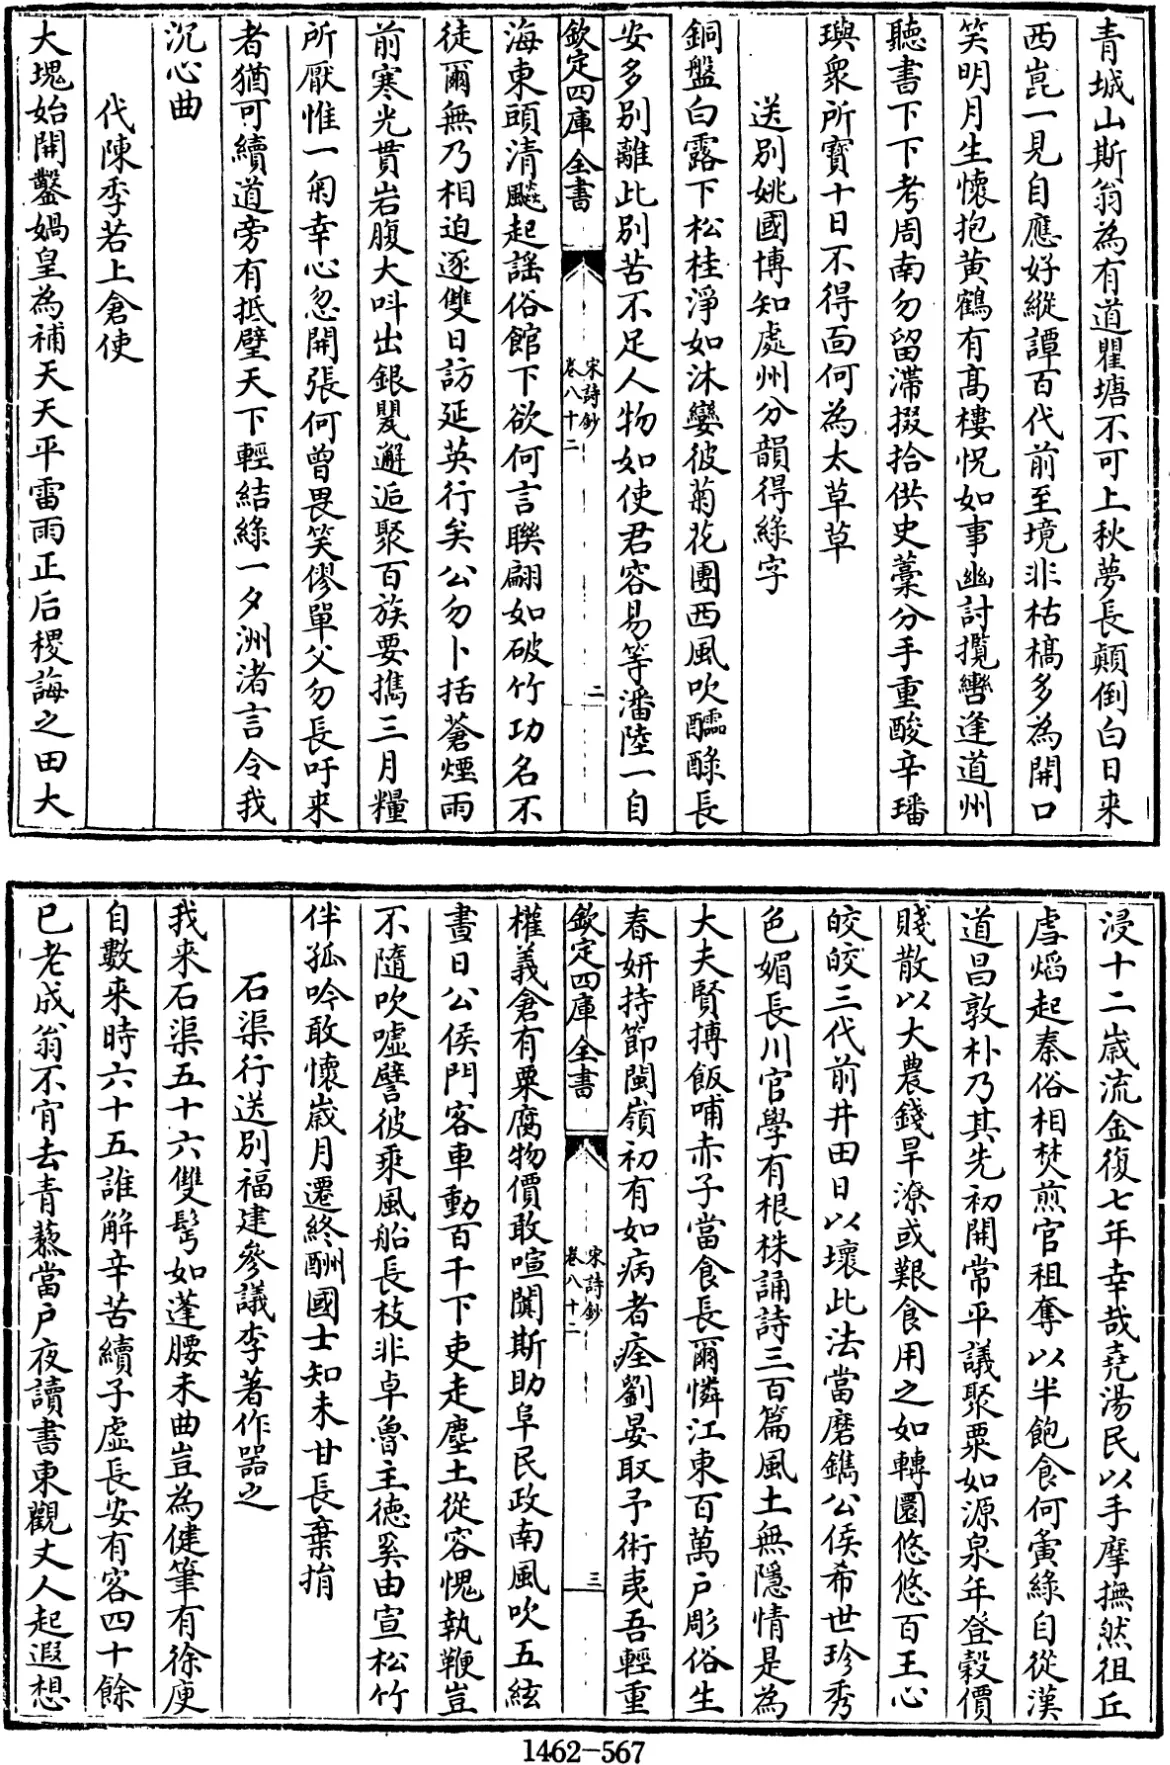 青城山斯翁為有道瞿塘不可上秋夢長顛倒白日来
西崑一見自應好縱譚百代前至境非枯槁多為開口
笑明月生懷抱黄鶴有髙樓怳如事幽討攬轡逢道州
聽書下下考周南勿留滯掇拾供史藁分手重酸辛璠
璵衆所寳十日不得面何為太草草
送别姚國博知處州分韻得綠字
銅盤白露下松桂淨如沐孌彼菊花團西風吹醽醁長
安多别離此别苦不足人物如使君容易等潘陸一自
欽定四庫全書
宋詩鈔
卷八十二
二
海東頭清飈起謡俗館下欲何言聨翩如破竹功名不
徒爾無乃相迫逐雙日訪延英行矣公勿卜括蒼煙雨
前寒光貫岩腹大呌出銀甖邂逅聚百族要攜三月糧
所厭惟一匊幸心忽開張何曾畏笑僇單父勿長吁来
者猶可續道旁有抵璧天下輕結綠一夕洲渚言令我
沉心曲
代陳季若上倉使
大塊始開鑿媧皇為補天天平雷雨正后稷誨之田大
浸十二嵗流金復七年幸哉堯湯民以手摩撫然徂丘
虐熖起秦俗相焚煎官租奪以半飽食何寅緣自從漢
道昌敦朴乃其先初開常平議聚粟如源泉年登穀價
賤散以大農錢旱潦或艱食用之如轉圜悠悠百王心
皎皎三代前井田日以壞此法當磨鐫公侯希世珍秀
色媚長川官學有根株誦詩三百篇風土無隱情是為
大夫賢搏飯哺赤子當食長爾憐江東百萬户彫俗生
春妍持節閩嶺初有如病者痊劉晏取予術夷吾輕重
欽定四庫全書
宋詩鈔
卷八十二
三
權義倉有粟腐物價敢喧闐斯助阜民政南風吹五絃
晝日公侯門客車動百千下吏走塵土從容愧執鞭豈
不隨吹噓譬彼乘風船長枝非卓魯主德奚由宣松竹
伴孤吟敢懷嵗月遷終酬國士知未甘長棄捐
石渠行送别福建參議李著作器之
我来石渠五十六雙髩如蓬腰未曲豈為健筆有徐庾
自數来時六十五誰解辛苦續子虚長安有客四十餘
已老成翁不肎去青藜當户夜讀書東觀丈人起遐想
1462-567